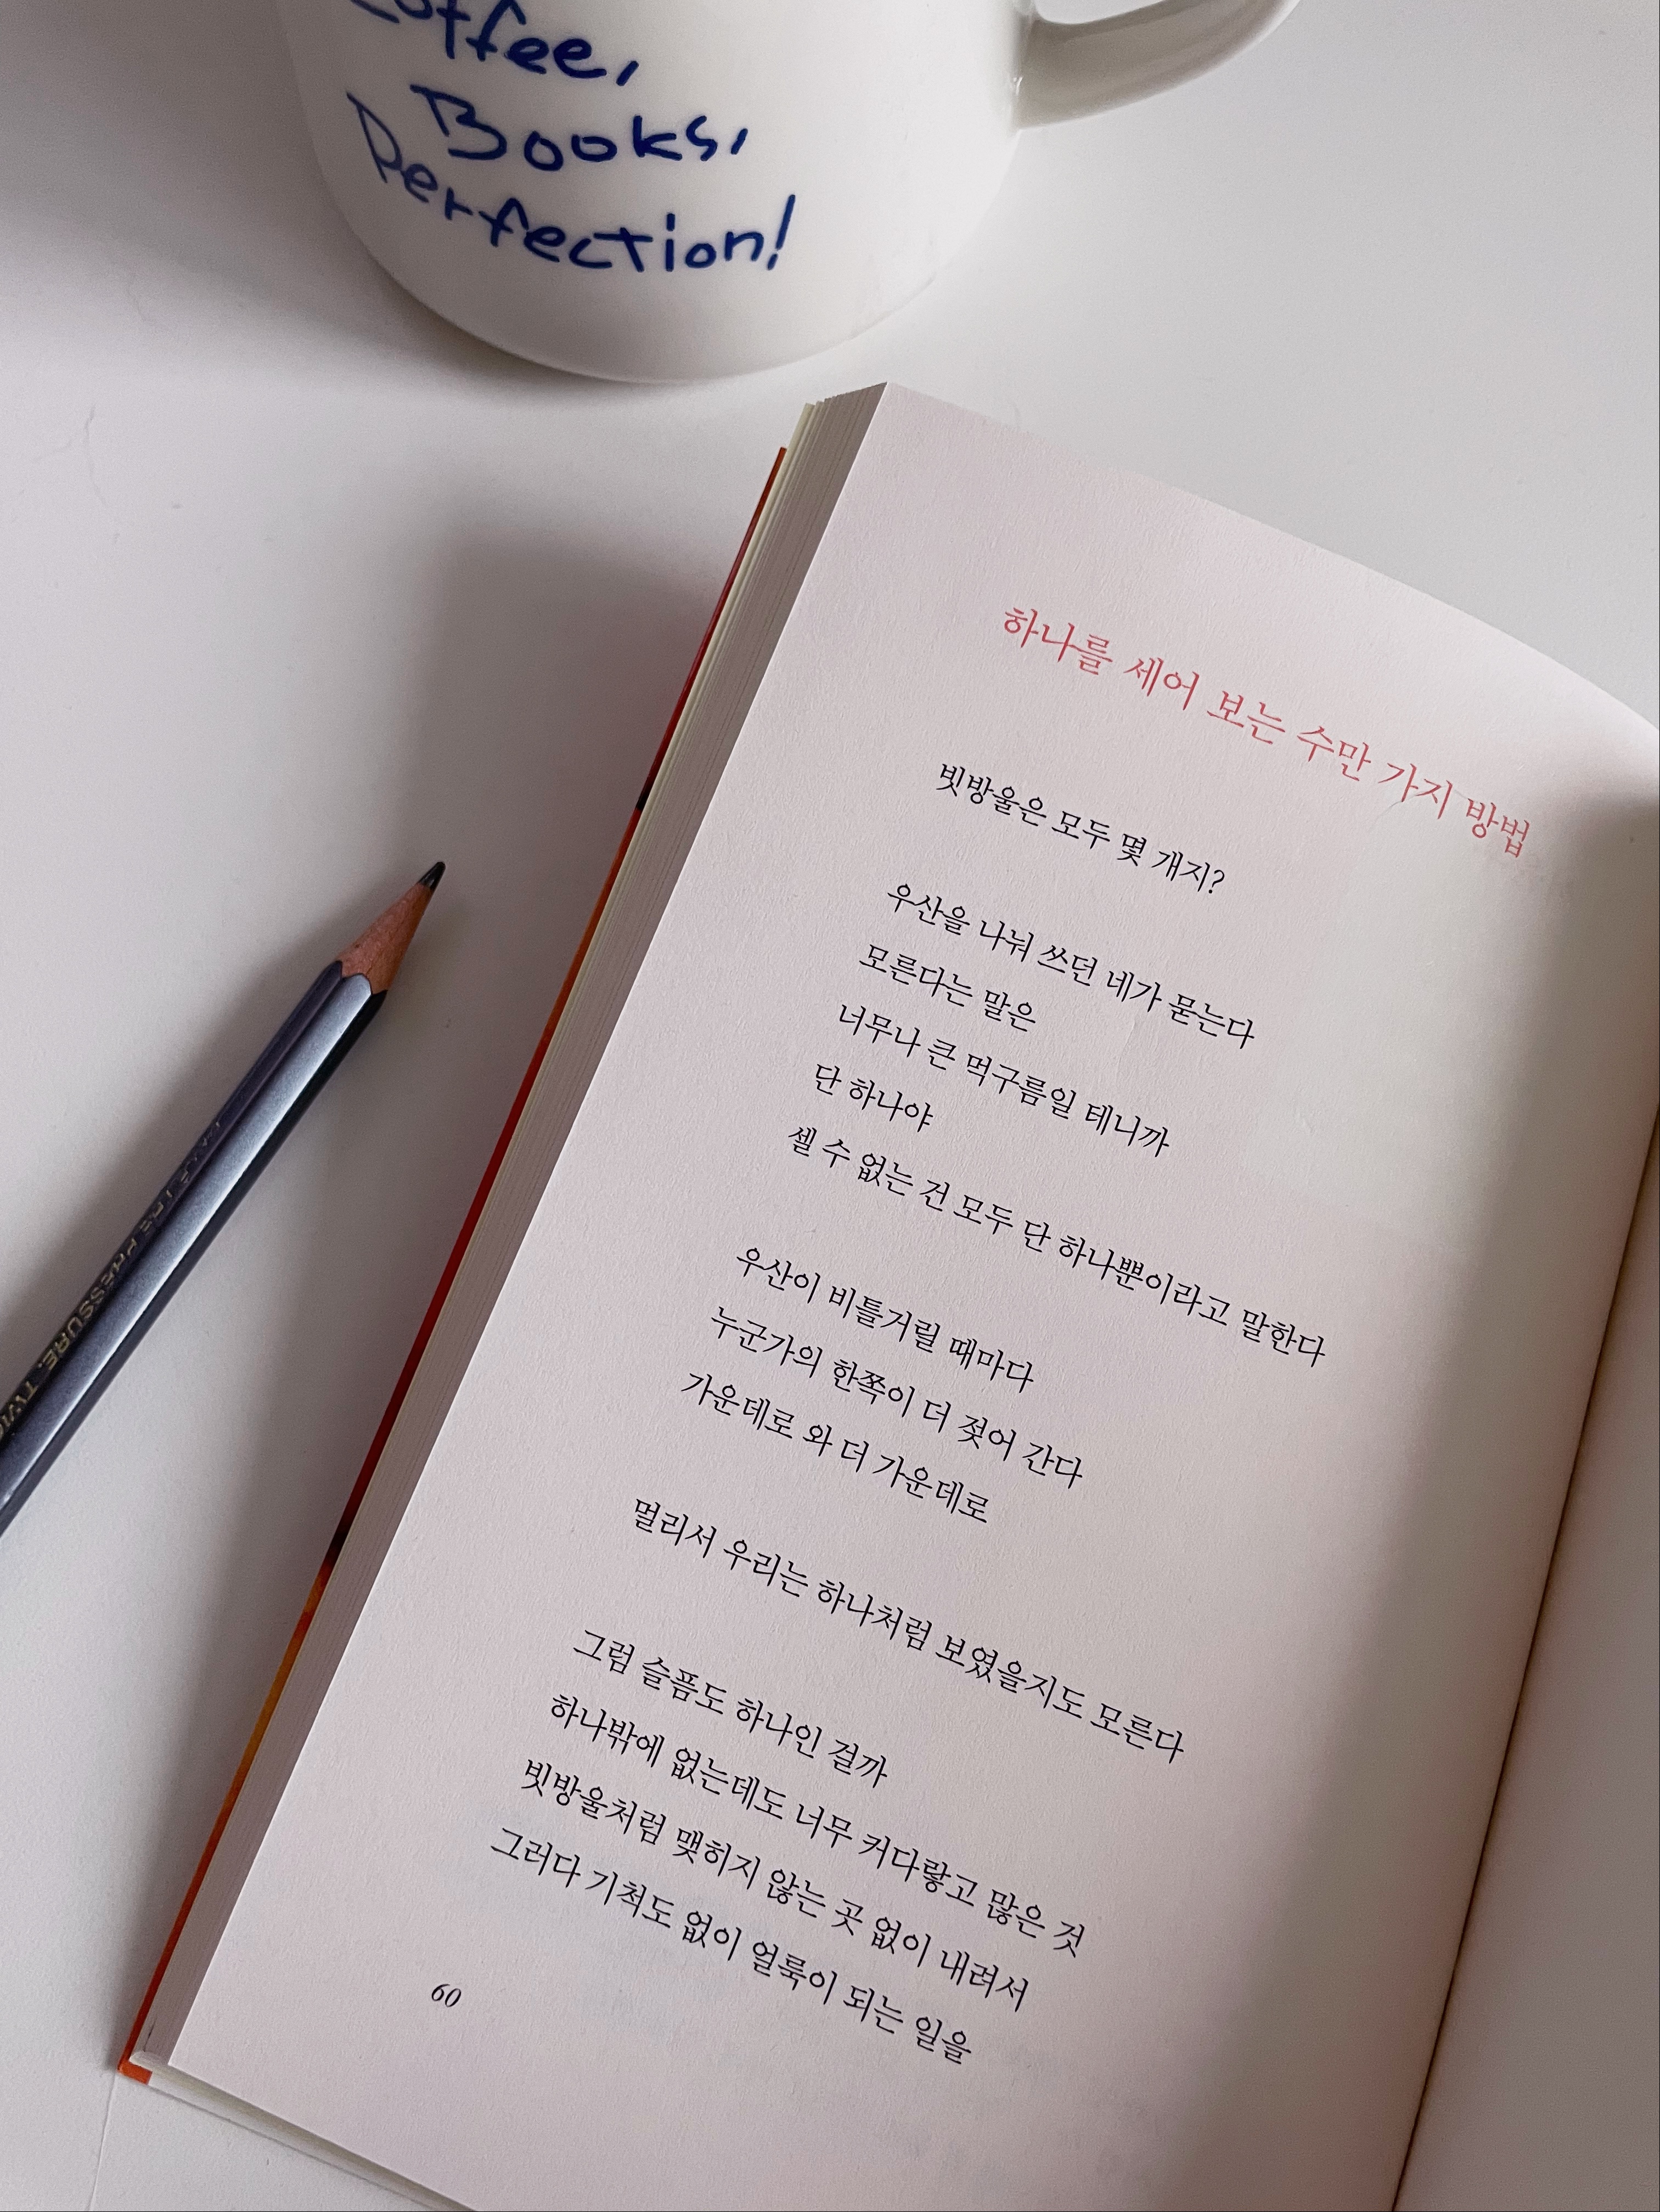 Coffee,
Books,
Perfection!
하나를 세어 보는 수만 가지 방법
빗방울은 모두 몇 개지?
우산을 나눠 쓰던 네가 묻는다
모른다는 말은
너무나 큰 먹구름일 테니까
단 하나야
셀 수 없는 건 모두 단 하나뿐이라고 말한다
우산이 비틀거릴 때마다
누군가의 한쪽이 더 젖어 간다
가운데로 와 더 가운데로
멀리서 우리는 하나처럼 보였을지도 모른다
그럼 슬픔도 하나인 걸까
하나밖에 없는데도 너무 커다랗고 많은 것
빗방울처럼 맺히지 않는 곳 없이 내려서
그러다 기척도 없이 얼룩이 되는 일을
60
PRESSURE.